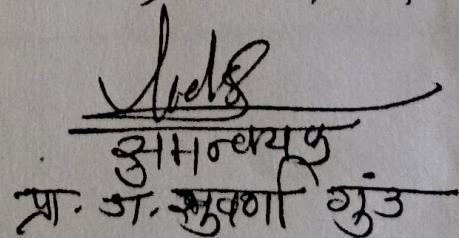 समन्वयक
प्रा. ज. सुवर्णा गुंड